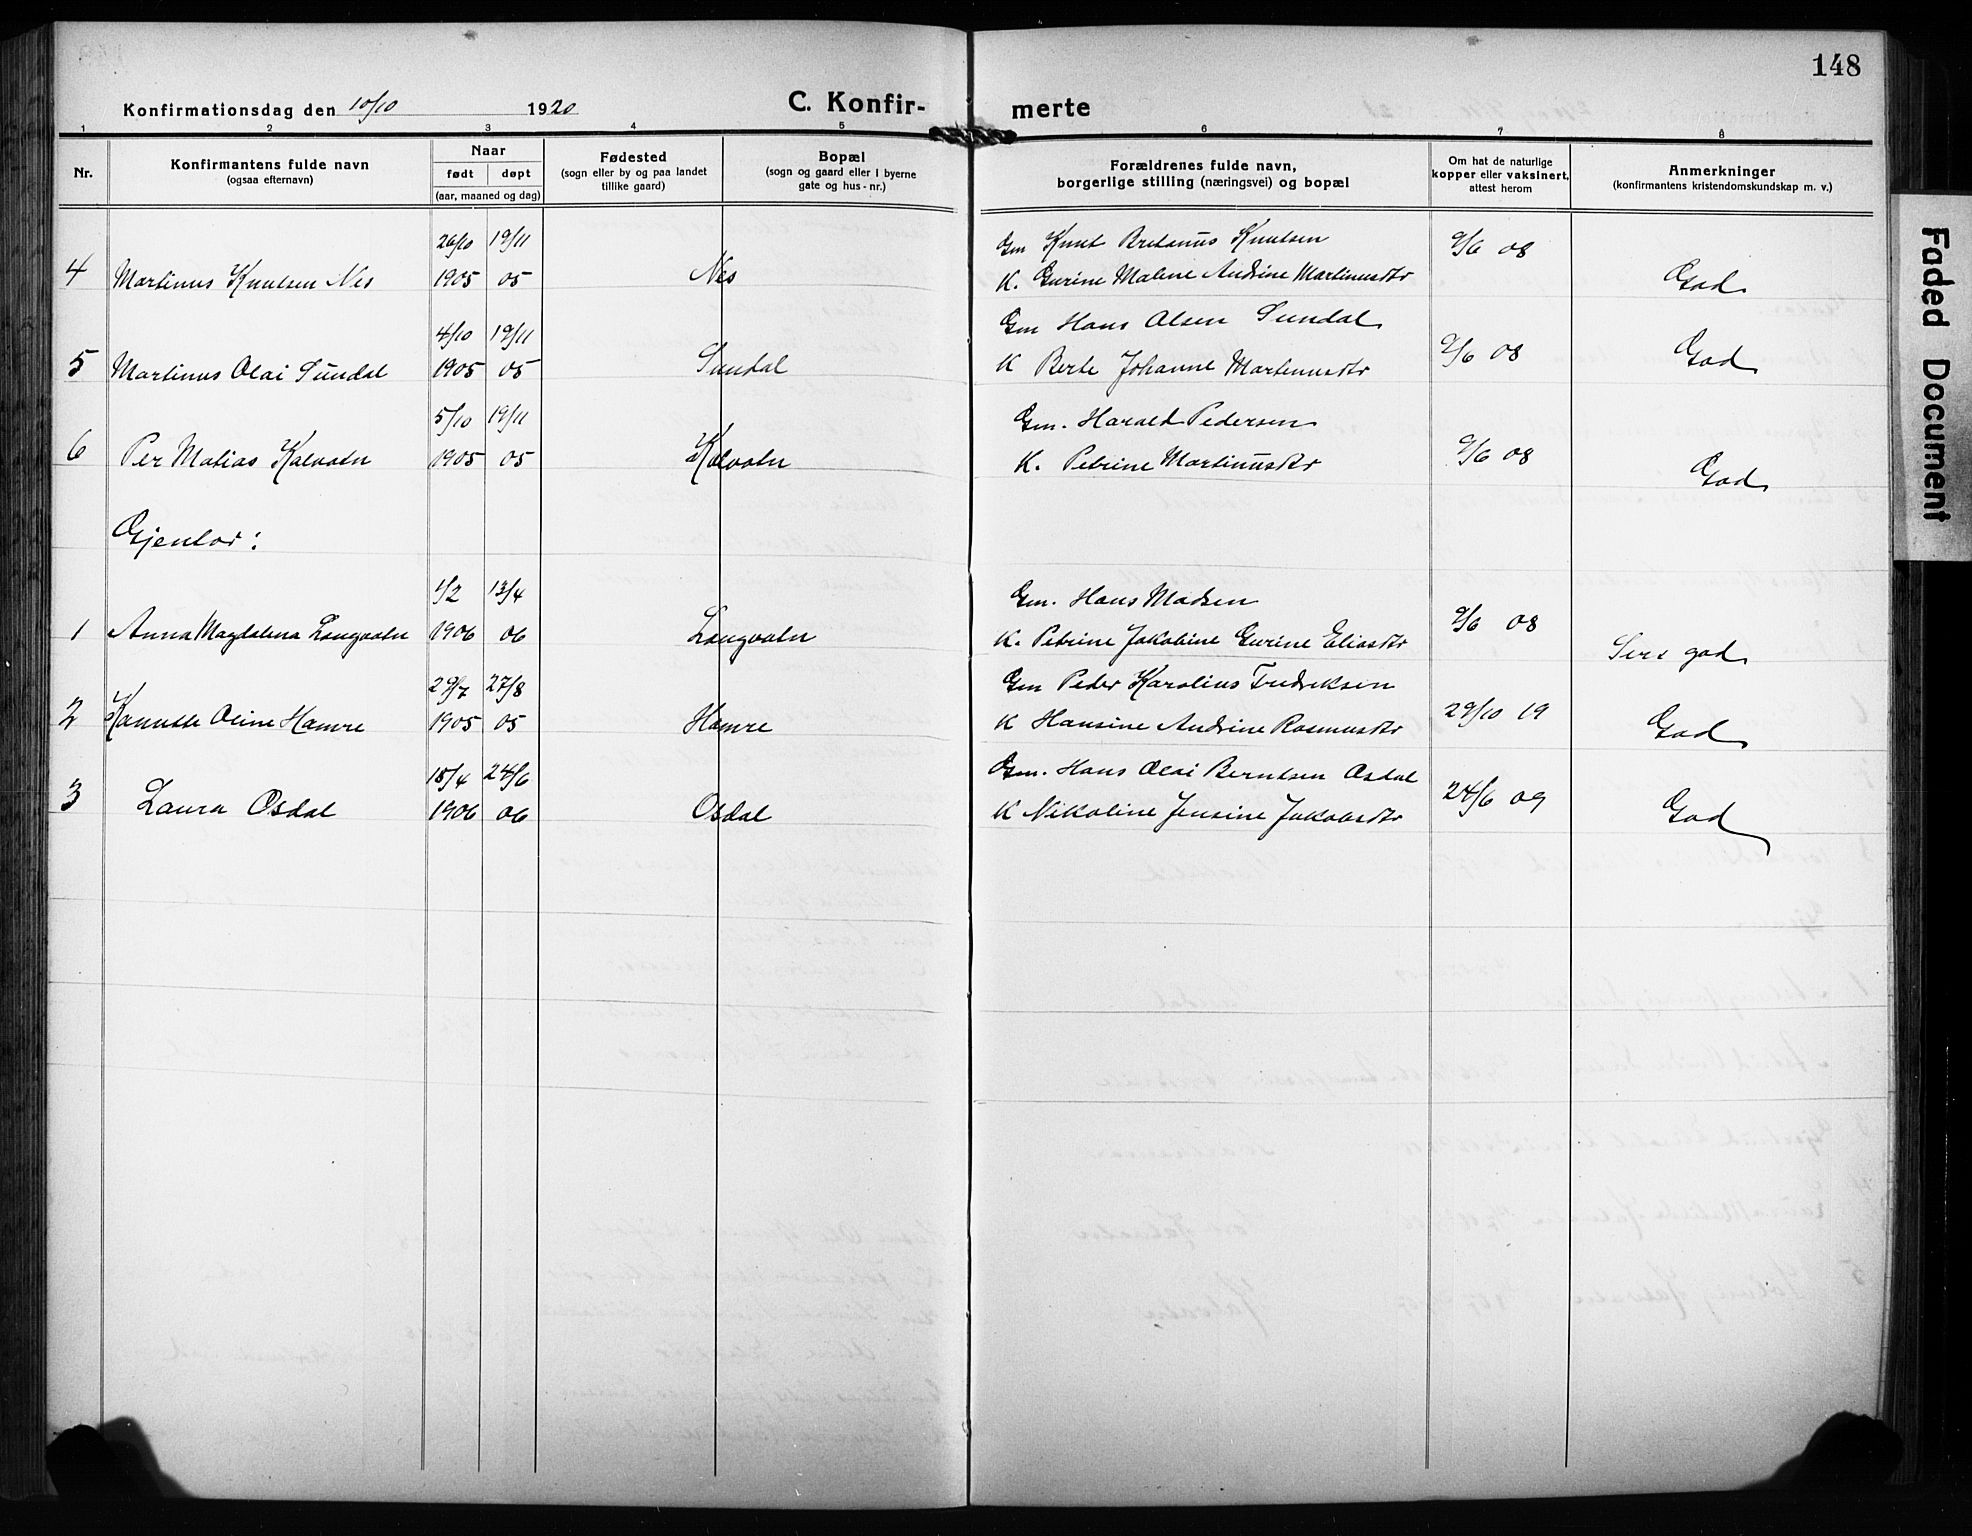 148
Konfirmationsdag den 10/10 1920 C. Konfir- merte
1 2 3 4 5 6 7 8
Nr.
Konfirmantens fulde navn
(ogsaa efternavn)
Naar
født døpt
(aar, maaned og dag)
Fødested
(sogn eller by og paa landet
tillike gaard)
Bopæl
(sogn og gaard eller i byerne
gate og hus-nr.)
Forældrenes fulde navn,
borgerlige stilling (næringsvei) og bopæl
Om hat de naturlige
kopper eller vaksinert,
attest herom
Anmerkninger
(konfirmantens kristendomskundskap m. v.)
26/10 19/11 Gm Knut Bretanus Knutsen 9/6 08
4 Martinus Knutsen Nes 1905 05 Nes K. Gurine Malene Andrine Martinusdtr God
4/10 19/11 Gm Hans Olsen Sundal
5 Martinus Olai Sundal 1905 05 Sundal K Berte Johanne Martinusdtr 9/6 08 God
5/10 19/11 Gm. Harald Pedersen
6 Per Matias Kalvatn 1905 05 Kalvatn K. Petrine Martinusdtr 9/6 08 God
Gjentor:
1/2 13/4 Gm. Hans Madsen
1 Anna Magdalena Langvatn 1906 06 Langvatn K. Petrine Jakobine Gurine Eliasdtr 9/6 08 Sers god
29/7 27/8 Gm Peder Karolius Fredriksen
2 Oline Hamre 1905 05 Hamre K Hansine Andrine Rasmusdtr 29/10 19 God
15/4 24/6 Gm. Hans Olai Berntsen Osdal
3 Laura Osdal 1906 06 Osdal K Nikoline Jensine Jakobsdtr 24/6 09 God
Faded Document